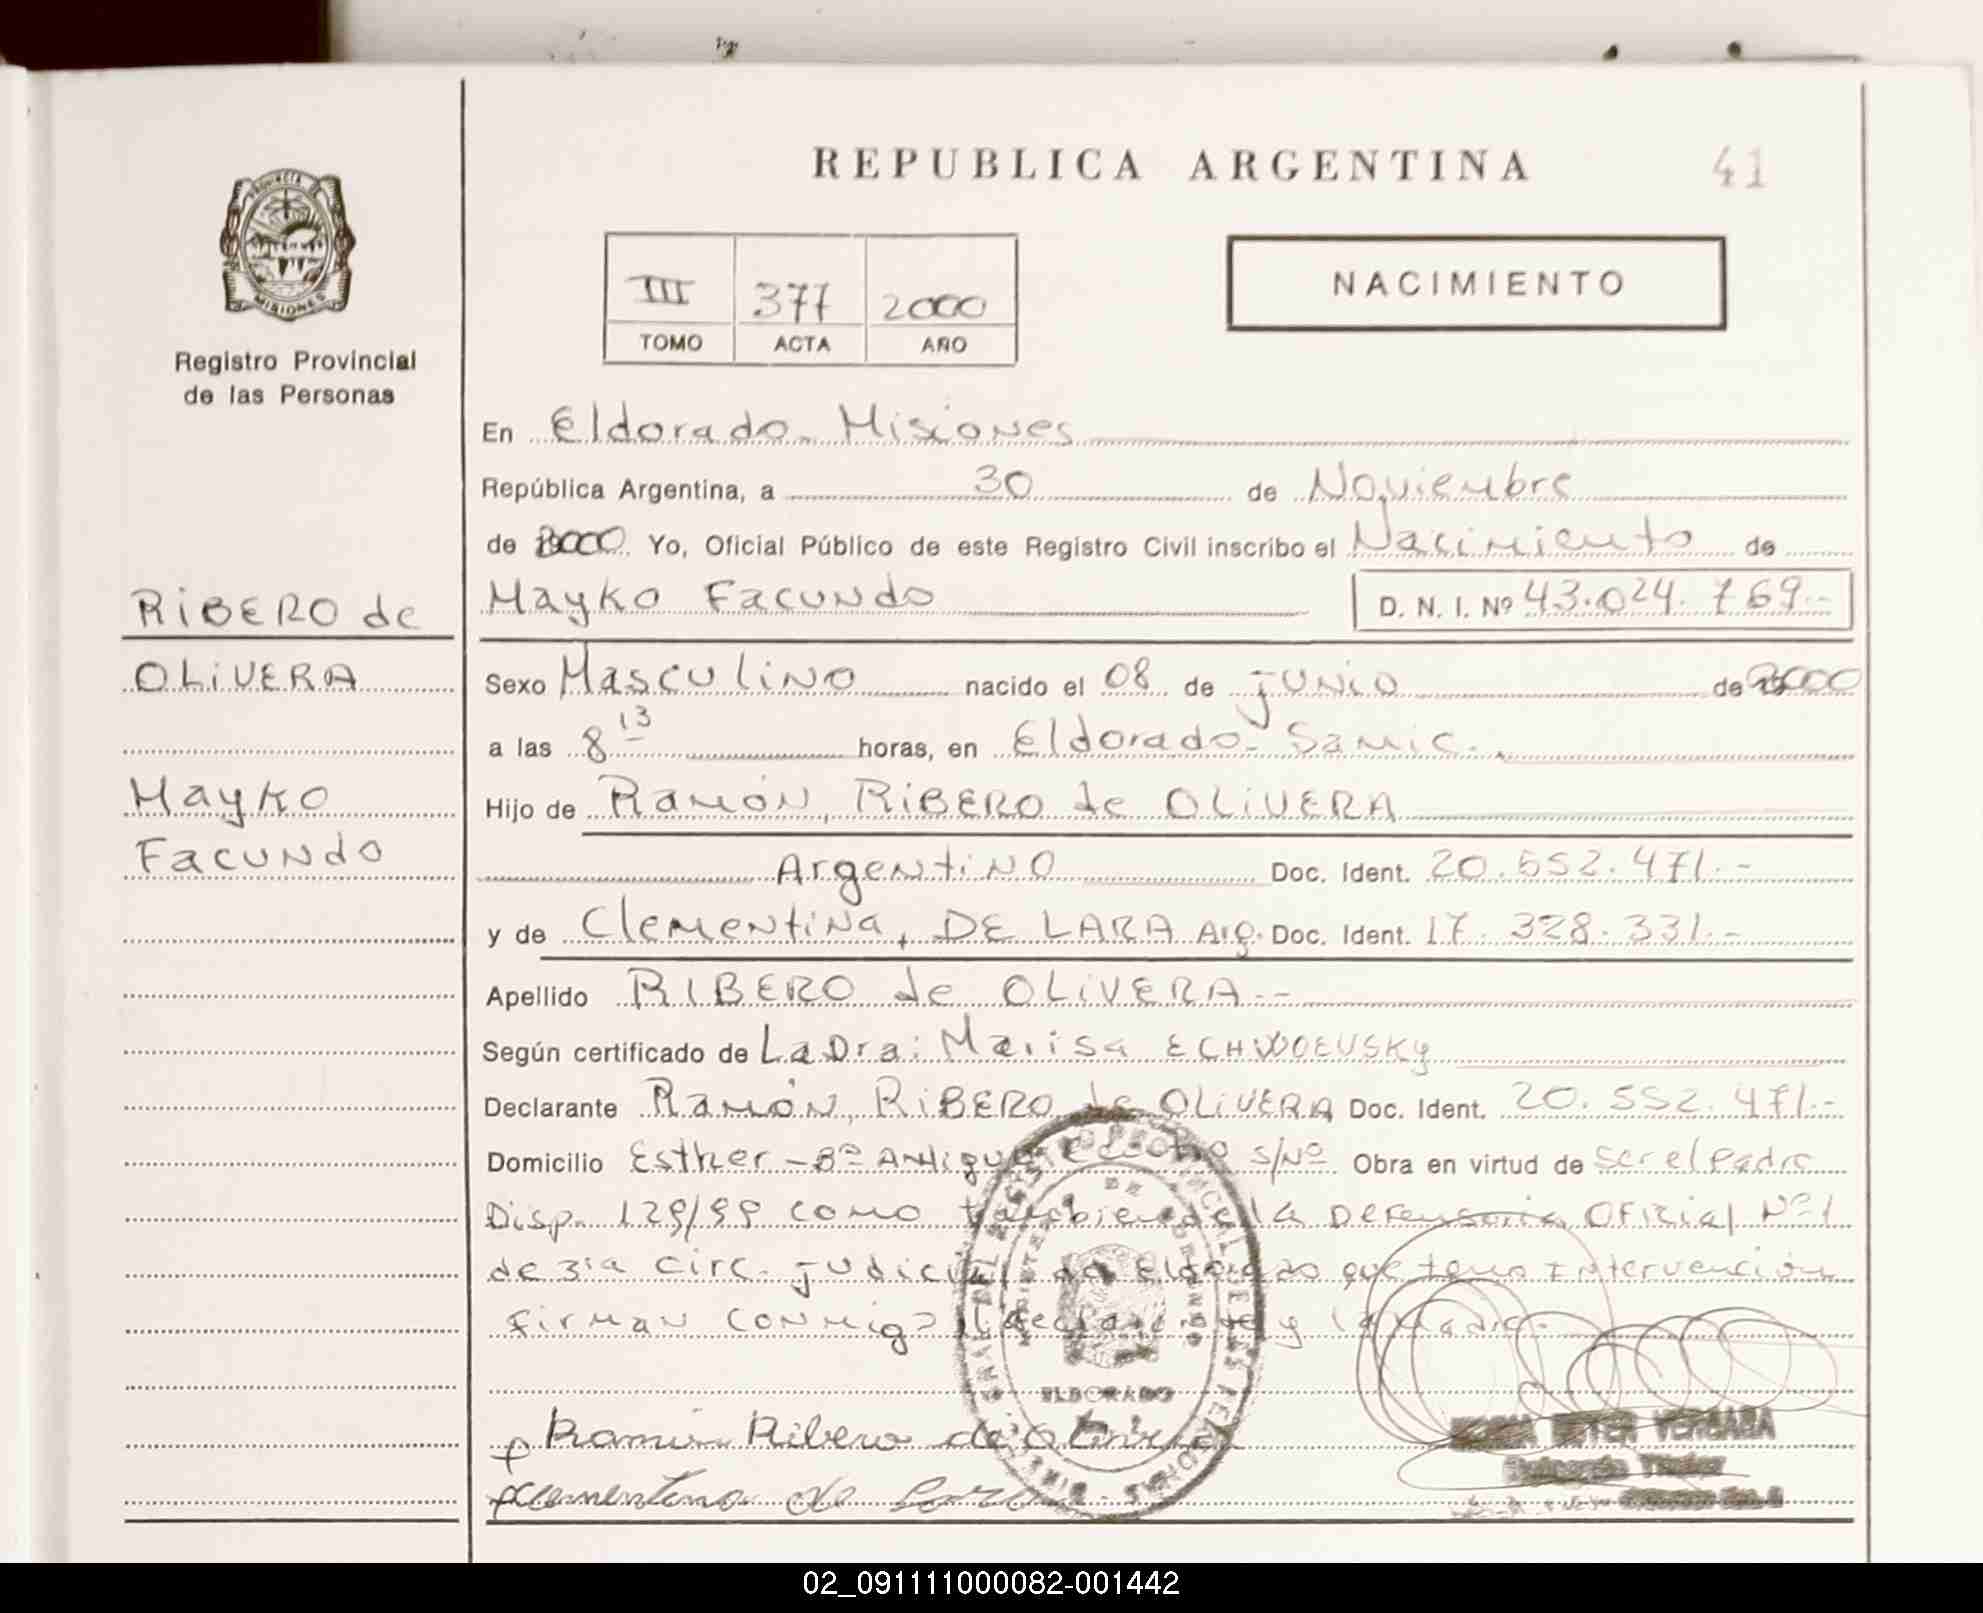 REPUBLICA ARGENTINA
41
PROVINCIA DE
MISIONES
Registro Provincial
de las Personas
III 377 2000
TOMO ACTA AÑO
NACIMIENTO
En Eldorado - Misiones
República Argentina, a 30 de Noviembre
de 2000 Yo, Oficial Público de este Registro Civil inscribo el Nacimiento de
Mayko Facundo D. N. I. Nº 43.024.769.-
RIBERO de
OLIVERA
Mayko
Facundo
Sexo Masculino nacido el 08 de junio de 2000
a las 8 13 horas, en Eldorado - Samic.
Hijo de Ramón, RIBERO de OLIVERA
Argentino Doc. Ident. 20.552.471.-
y de Clementina, DE LARA Arg. Doc. Ident. 17.328.331.-
Apellido RIBERO de OLIVERA.-
Según certificado de La Dra: Marisa
Declarante Ramón, RIBERO de OLIVERA Doc. Ident. 20.552.471.-
Domicilio Esther - Bº Antiguo S/Nº Obra en virtud de ser el Padre
Disp. 129/99 como también de la Defensoria Oficial Nº 1
de 3ra circ. judicial de Eldorado que tomo intervención
firman conmigo el declarante y la madre.-
Ramón Ribero de Olivera
Clementina de Lara
ELDORADO
VERGARA
02_091111000082-001442